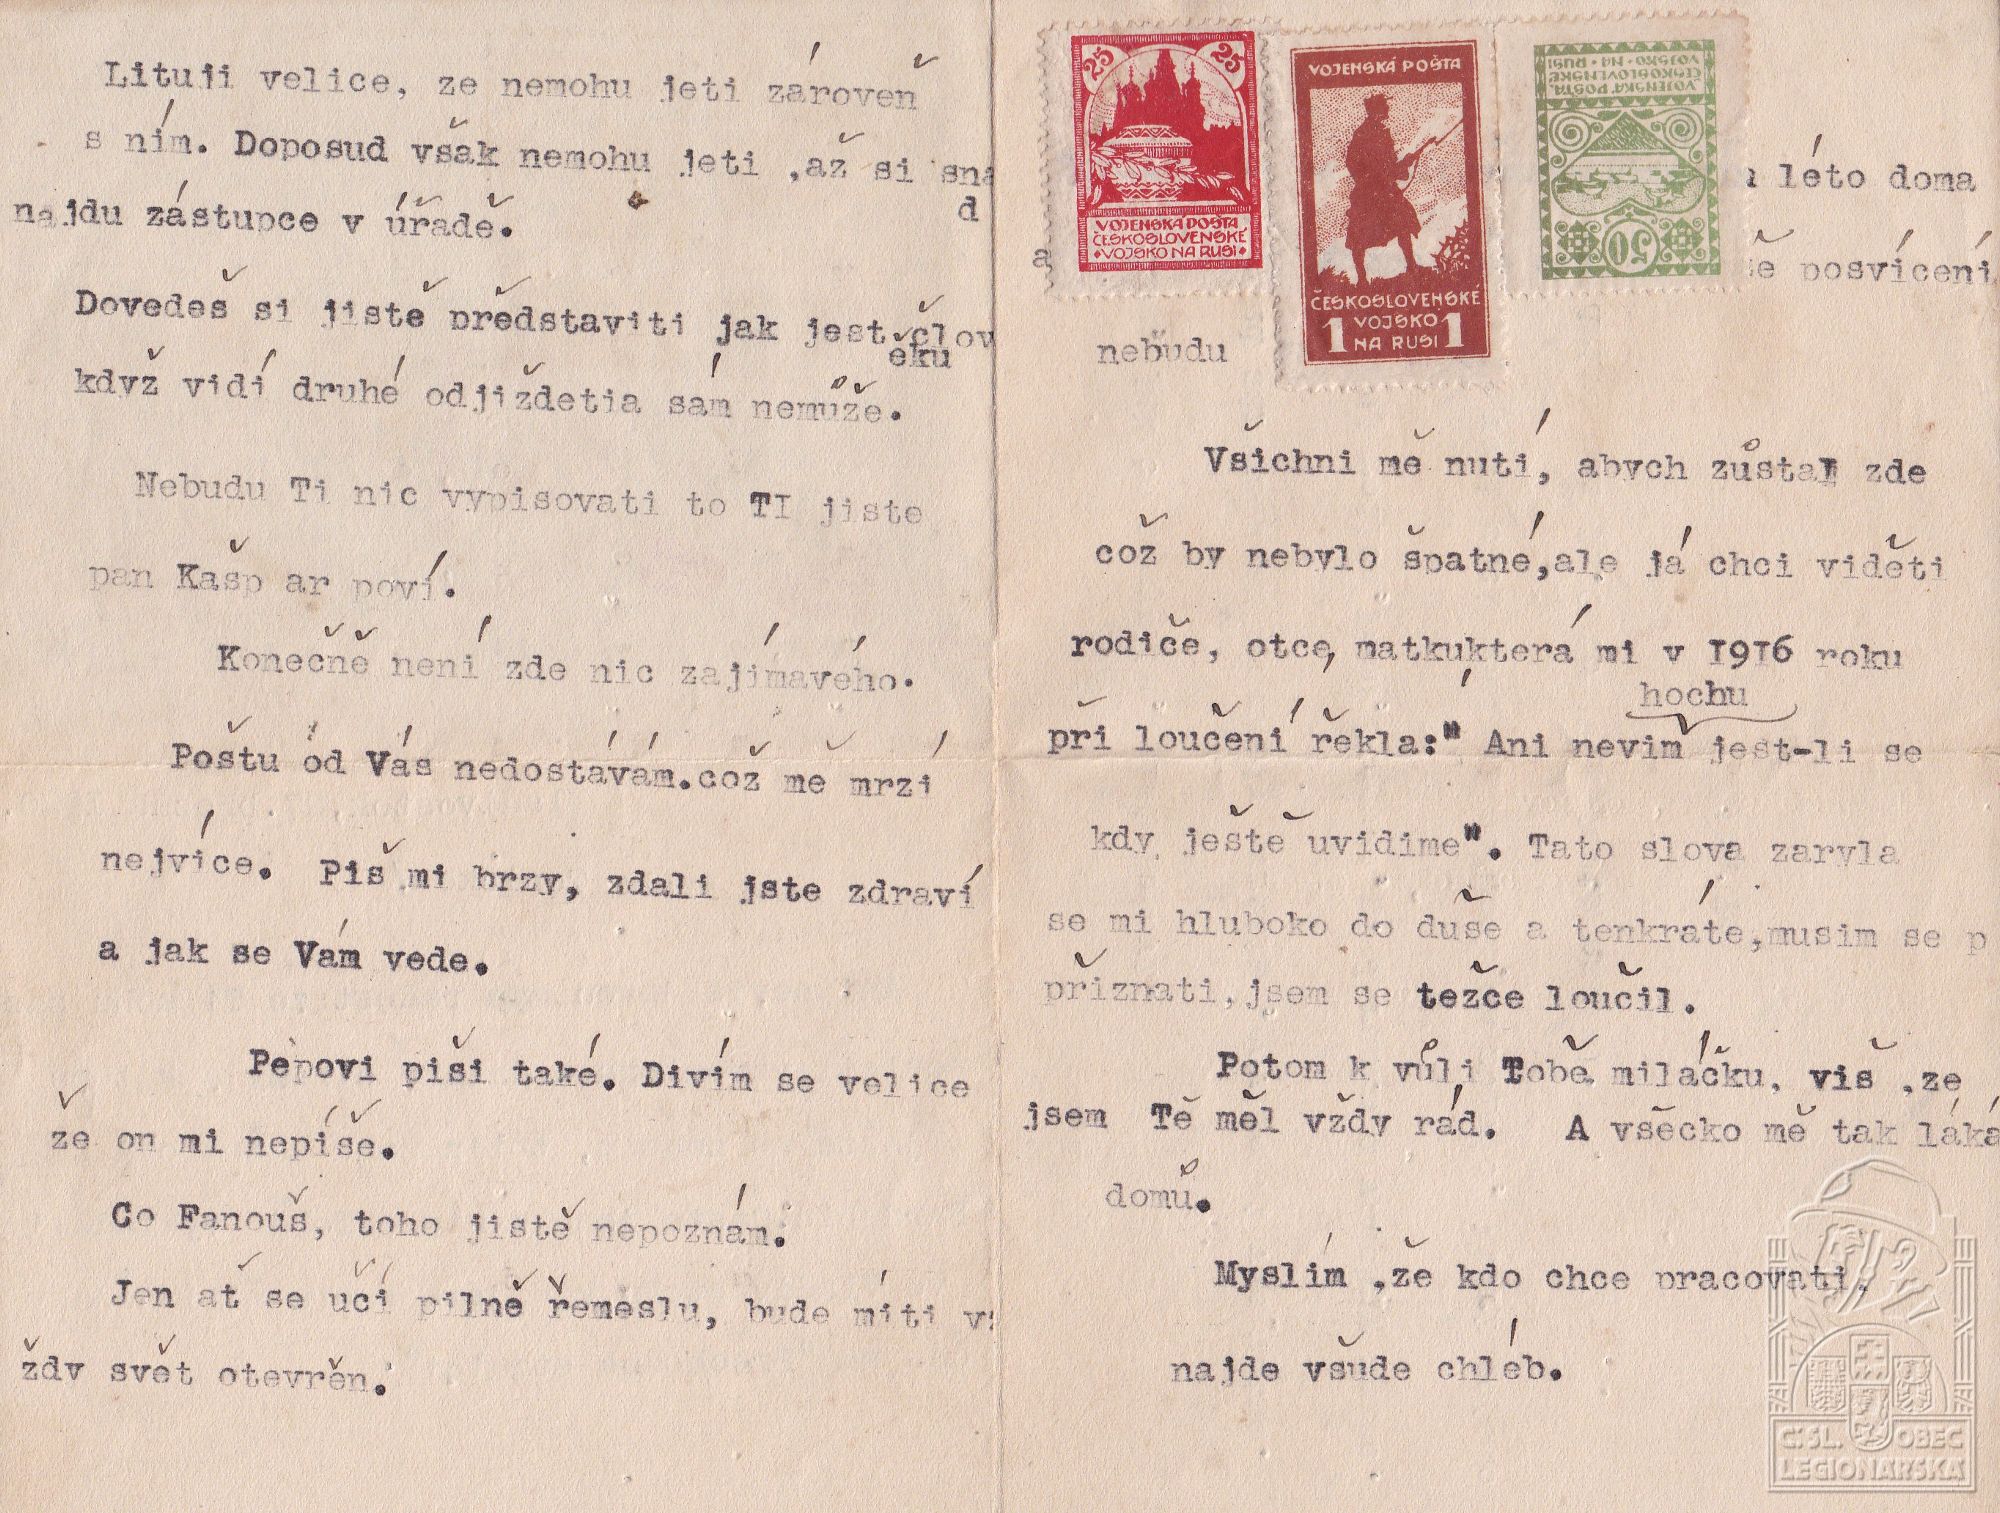 Lituji velice, ze nemohu jeti zároveň
s ním. Doposud však nemohu jeti ,až si sna
d
najdu zástupce v úřadě.
Dovedeš si jistě představiti jak jest člov
ěku
když vidí druhé odjiždetia sám nemůže.
Nebudu Ti nic vypisovati to TI jiste
pan Kašp ar poví.
Konečně není zde nic zajímavého.
Poštu od Vás nedostávám.což mě mrzí
nejvíce. Piš mi brzy, zdali jste zdraví
a jak se Vám vede.
Pepovi piši také. Divím se velice
že on mi nepíše.
Co Fanouš, toho jistě nepoznám.
Jen ať se učí pilně řemeslu, bude míti v
ždy svět otevřěn.
25 25
VOJENSKÁ POŠTA
ČESKOSLOVENSKÉ
VOJSKO NA RUSI
VOJENSKÁ POŠTA
ČESKOSLOVENSKÉ
1 VOJSKO 1
NA RUSI
VOJENSKÁ POŠTA
ČESKOSLOVENSKÉ
VOJSKO NA RUSI
50
léto doma
a posvícení
nebudu
Všichni mě nutí, abych zůstal zde
což by nebylo špatné,ale já chci viděti
rodiče, otce, matkukterá mi v 1916 roku
hochu
při loučení řekla:" Ani nevim jest-li se
kdy ještě uvidime". Tato slova zaryla
se mi hluboko do duše a tenkráte,musim se p
přiznati,jsem se težce loučil.
Potom k vůli Tobě miláčku, viš ,ze
jsem Tě měl vždy rád. A všěcko mě tak láká
domů.
Myslím ,že kdo chce pracovati,
najde všude chléb.
ČSL. OBEC
LEGIONÁŘSKÁ